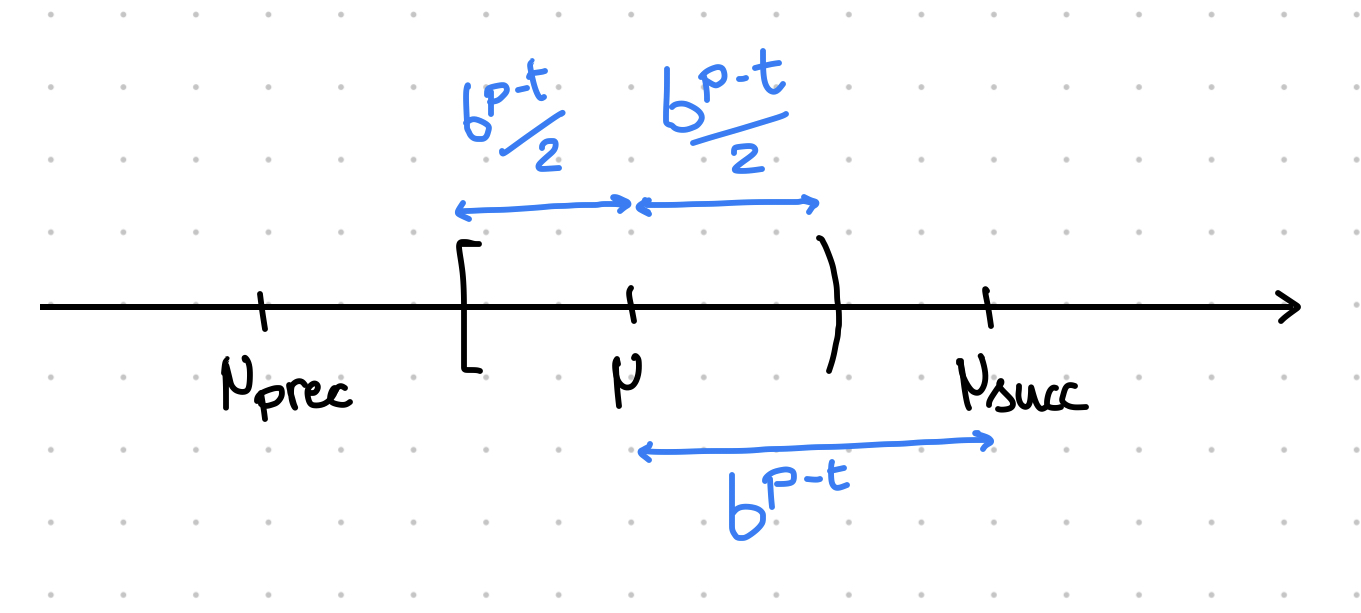 b^{p-t}/2 b^{p-t}/2
μprec μ μsucc
b^{p-t}